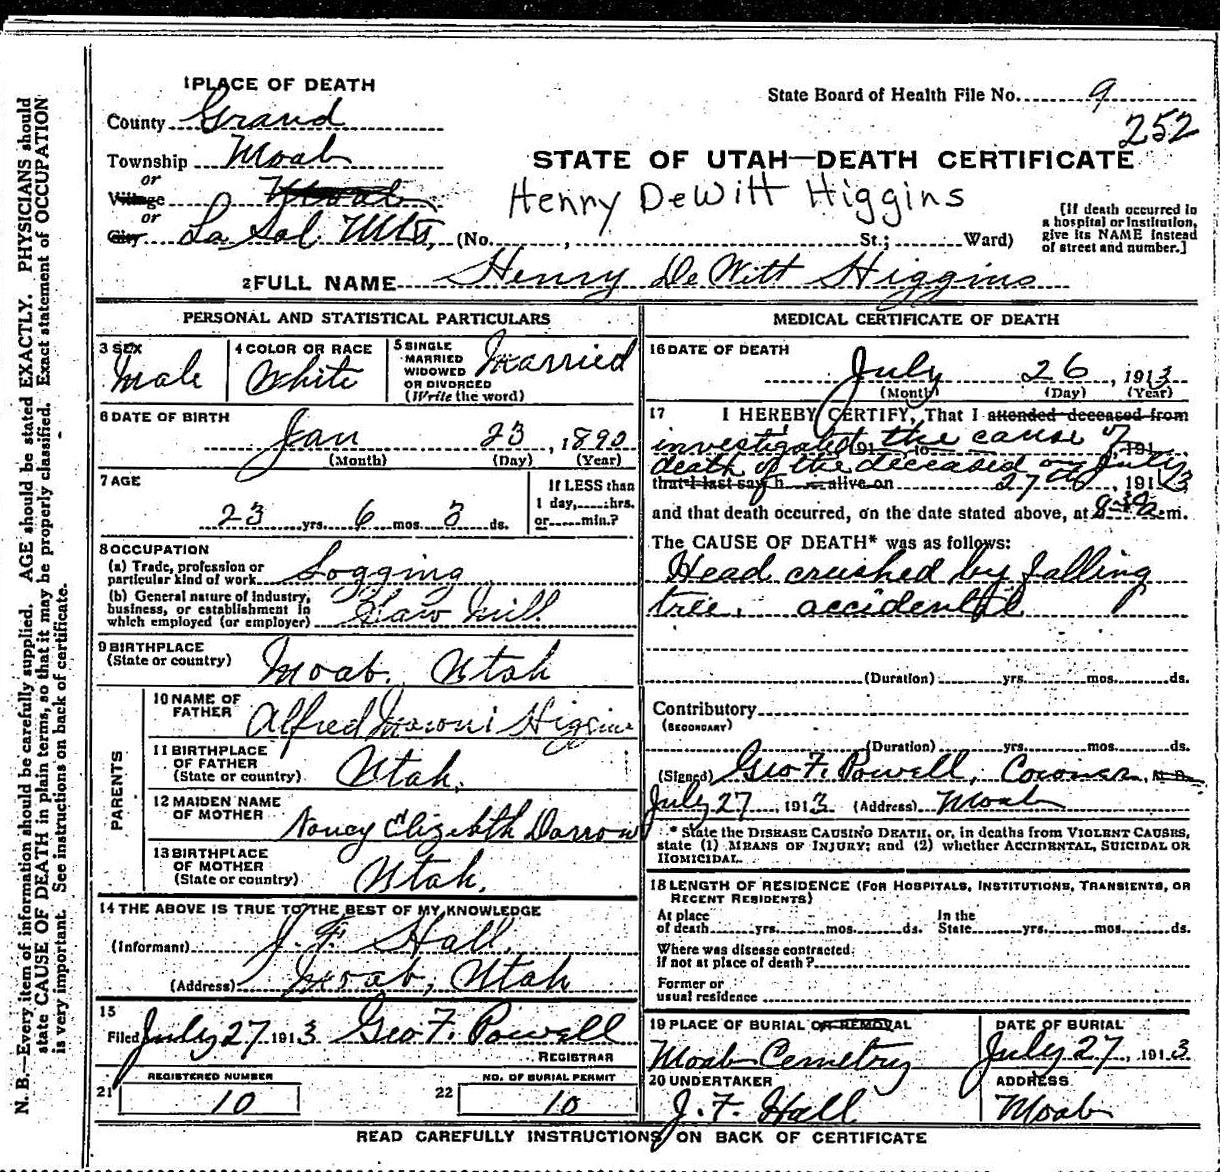 1 PLACE OF DEATH
County Grand
Township Moab
or
Village Moab
or
City La Sal Mts, (No. , St.; Ward)
State Board of Health File No. 9
252
STATE OF UTAH—DEATH CERTIFICATE
Henry DeWitt Higgins
[If death occurred in
a hospital or institution,
give its NAME instead
of street and number.]
2 FULL NAME Henry DeWitt Higgins
PERSONAL AND STATISTICAL PARTICULARS
3 SEX
Male
4 COLOR OR RACE
White
5 SINGLE
MARRIED
WIDOWED
OR DIVORCED
(Write the word)
Married
6 DATE OF BIRTH
Jan 23, 1890
(Month) (Day) (Year)
7 AGE
23 yrs. 6 mos. 3 ds.
If LESS than
1 day, hrs.
or min.?
8 OCCUPATION
(a) Trade, profession or
particular kind of work Logging
(b) General nature of industry,
business, or establishment in
which employed (or employer) Saw Mill
9 BIRTHPLACE
(State or country) Moab, Utah
PARENTS
10 NAME OF
FATHER Alfred Moroni Higgins
11 BIRTHPLACE
OF FATHER
(State or country) Utah.
12 MAIDEN NAME
OF MOTHER Nancy Elizabeth Darrow
13 BIRTHPLACE
OF MOTHER
(State or country) Utah.
14 THE ABOVE IS TRUE TO THE BEST OF MY KNOWLEDGE
(Informant) J. F. Hall.
(Address) Moab, Utah
15
Filed July 27 1913 Geo F. Powell
REGISTRAR
21 REGISTERED NUMBER
10
22 NO. OF BURIAL PERMIT
10
MEDICAL CERTIFICATE OF DEATH
16 DATE OF DEATH
July 26, 1913
(Month) (Day) (Year)
17 I HEREBY CERTIFY, That I attended deceased from
investigated 191 , to the cause of 191
death of the deceased on July
that I last saw h alive on 27th, 1913
and that death occurred, on the date stated above, at 8:30 a.m.
The CAUSE OF DEATH* was as follows:
Head crushed by falling
tree. accidental
(Duration) yrs. mos. ds.
Contributory
(SECONDARY)
(Duration) yrs. mos. ds.
(Signed) Geo F. Powell, Coroner, M. D.
July 27, 1913 (Address) Moab
* State the DISEASE CAUSING DEATH, or, in deaths from VIOLENT CAUSES,
state (1) MEANS OF INJURY; and (2) whether ACCIDENTAL, SUICIDAL OR
HOMICIDAL.
18 LENGTH OF RESIDENCE (FOR HOSPITALS, INSTITUTIONS, TRANSIENTS, OR
RECENT RESIDENTS)
At place
of death yrs. mos. ds.
In the
State yrs. mos. ds.
Where was disease contracted.
if not at place of death?
Former or
usual residence
19 PLACE OF BURIAL OR REMOVAL
Moab Cemetry
DATE OF BURIAL
July 27, 1913
20 UNDERTAKER
J. F. Hall
ADDRESS
Moab
READ CAREFULLY INSTRUCTIONS ON BACK OF CERTIFICATE
N. B.—Every item of information should be carefully supplied. AGE should be stated EXACTLY. PHYSICIANS should
state CAUSE OF DEATH in plain terms, so that it may be properly classified. Exact statement of OCCUPATION
is very important. See instructions on back of certificate.